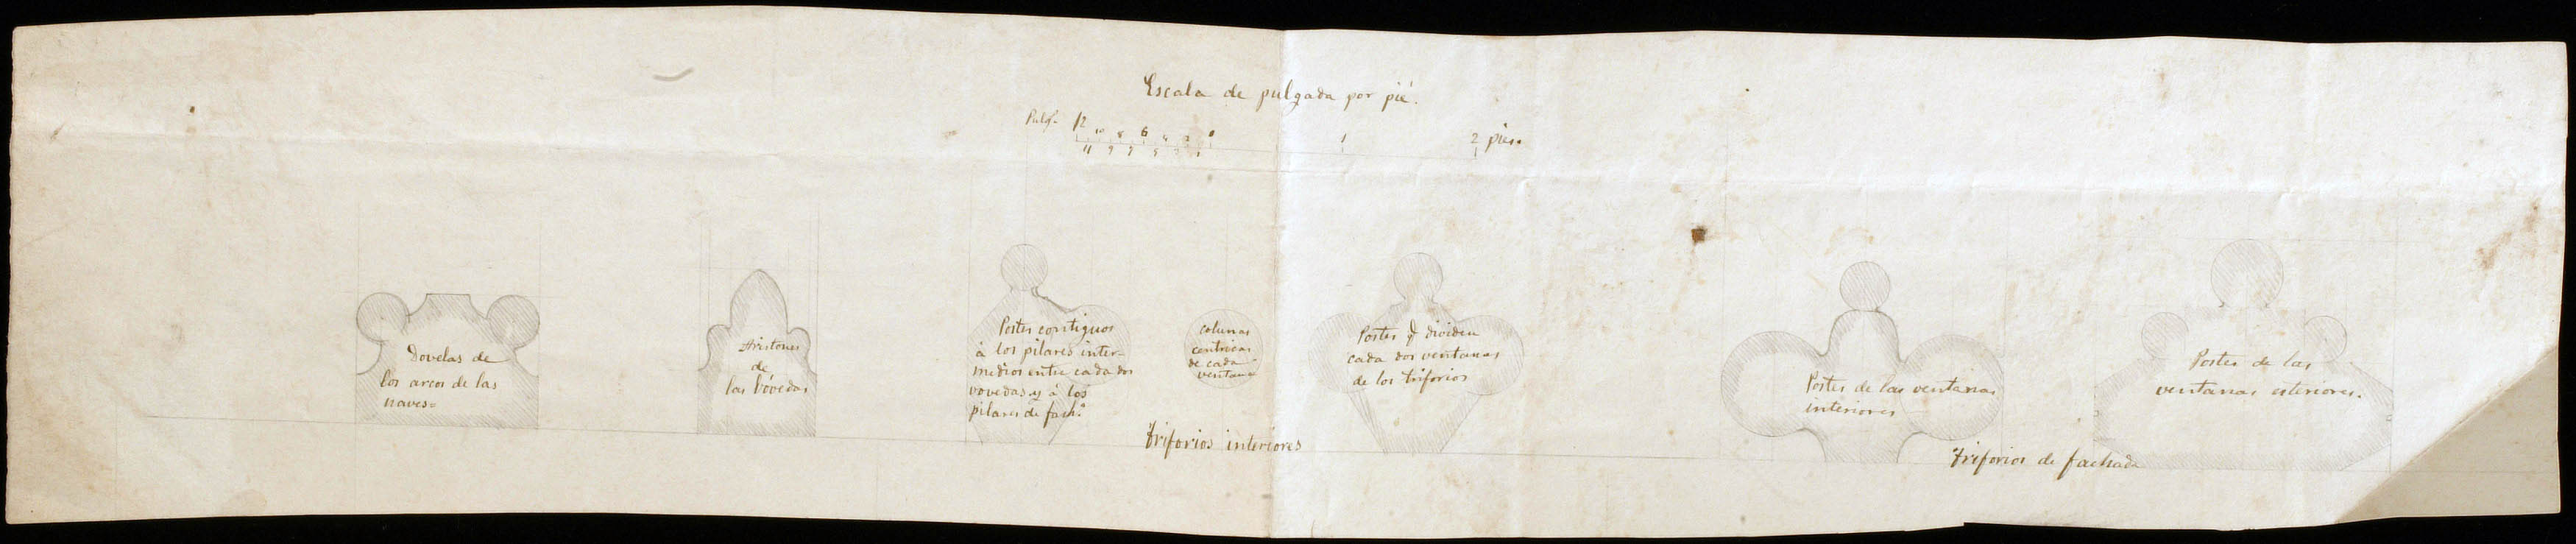 Escala de pulgada por pié.
Pulg.s 12 10 8 6 4 2 0 1 2 pies.
11 9 7 5 3 1
Dovelas de
los arcos de las
naves=
Aristones
de
las bóvedas
Postes contiguos
à los pilares inter-
medios entre cada dos
vovedas y à los
pilares de fach.ª
colunas
centricas
de cada
ventana
Postes q dividen
cada dos ventanas
de los triforios
Triforios interiores
Postes de las ventanas
interiores
Postes de las
ventanas esteriores.
Triforios de fachada